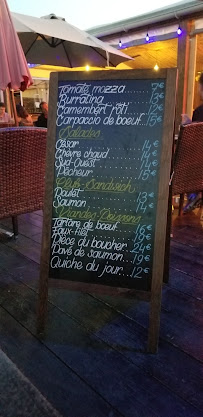 Tomate mozza......7€
Burratina
Camembert rôti
Carpaccio de boeuf...15€
Salades
César......14€
Chèvre chaud......14€
Sud-Ouest
Pêcheur......15€
Poulet......13€
Saumon
Viandes
Tartare de boeuf...18€
Faux-Filet
Pièce du boucher...24€
Pavé de saumon...19€
Quiche du jour......12€